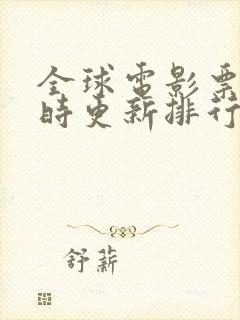 全球电影票
时更新排行
舒薪